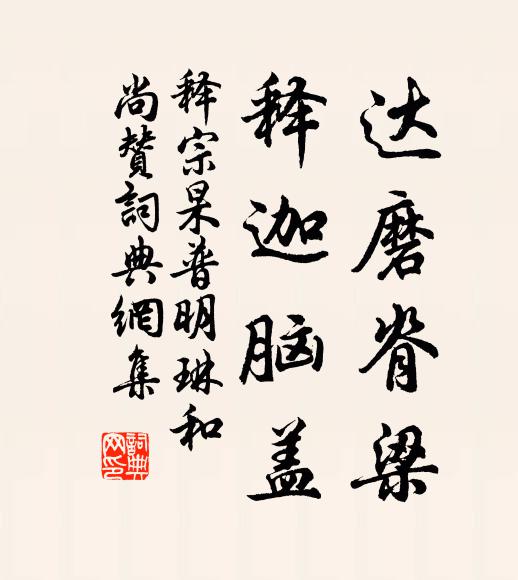 达磨脊梁
释迦脑盖
释宗杲普明琳和
尚赞詞典網集
詞典网印